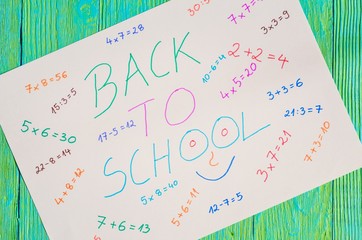 30:5
4×7=28
7×7=
3×3=9
7×8=56
BACK
2×2=4
10-6=4
15:3=5
4×5=20
3+3=6
5×6=30
17-5=12
TO
21:3=7
22-8=14
SCHOOL
3×7=21
7+3=10
4+8=12
5×8=40
5+6=11
12-7=5
7+6=13